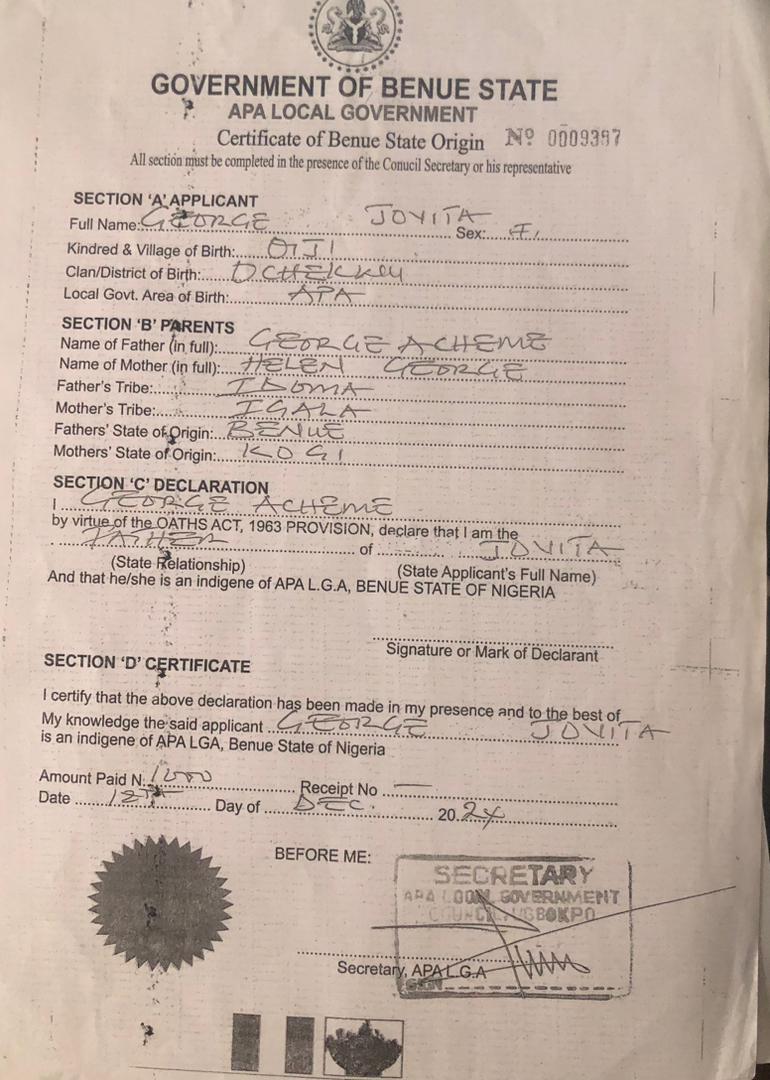 GOVERNMENT OF BENUE STATE
APA LOCAL GOVERNMENT
Certificate of Benue State Origin Nº 0009397
All section must be completed in the presence of the Conucil Secretary or his representative
SECTION 'A' APPLICANT
Full Name: GEORGE JOVITA Sex: F.
Kindred & Village of Birth: OIJI
Clan/District of Birth:
Local Govt. Area of Birth: APA
SECTION 'B' PARENTS
Name of Father (in full): GEORGE ACHEME
Name of Mother (in full): HELEN GEORGE
Father's Tribe: IDOMA
Mother's Tribe: IGALA
Fathers' State of Origin: BENUE
Mothers' State of Origin: KOGI
SECTION 'C' DECLARATION
I GEORGE ACHEME
by virtue of the OATHS ACT, 1963 PROVISION, declare that I am the
FATHER of JOVITA
(State Relationship) (State Applicant's Full Name)
And that he/she is an indigene of APA L.G.A, BENUE STATE OF NIGERIA
Signature or Mark of Declarant
SECTION 'D' CERTIFICATE
I certify that the above declaration has been made in my presence and to the best of
My knowledge the said applicant GEORGE JOVITA
is an indigene of APA LGA, Benue State of Nigeria
Amount Paid N: 1000 Receipt No —
Date 12TH Day of DEC. 20.24
BEFORE ME:
SECRETARY
APA LOCAL GOVERNMENT
COUNCIL, UGBOKPO
Secretary, APA L.G.A